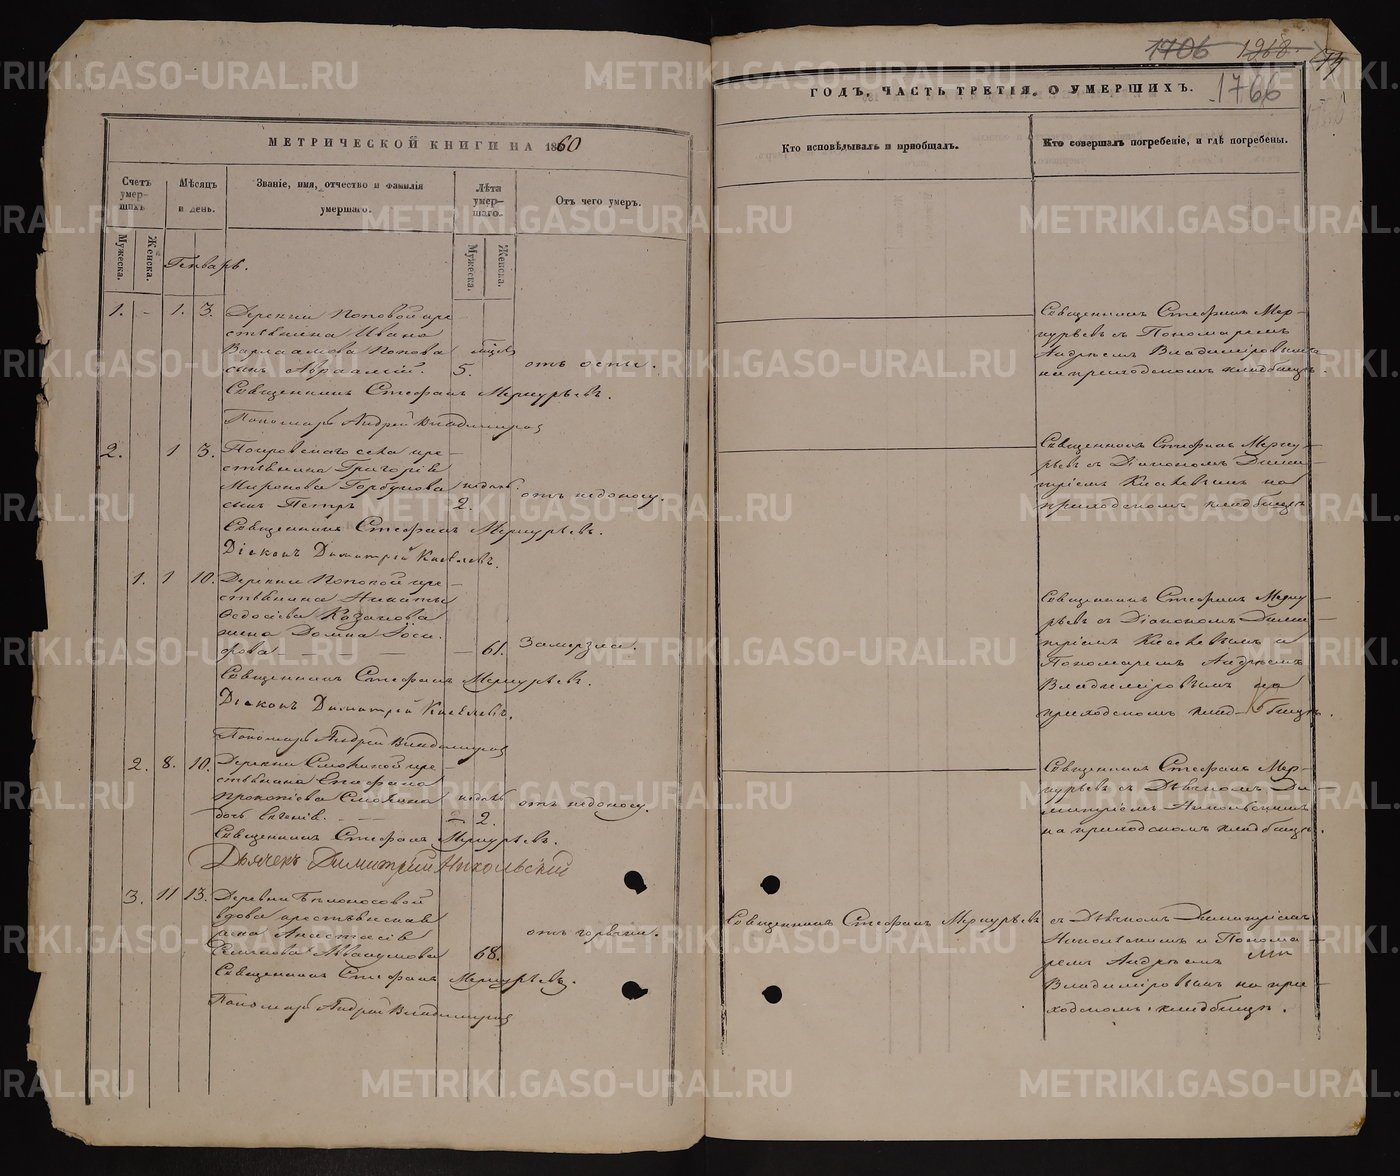 МЕТРИЧЕСКОЙ КНИГИ НА 1860
Счетъ умер-шихъ.
Мѣсяцъ и день.
Званіе, имя, отчество и фамилія умершаго.
Лѣта умер-шаго.
Отъ чего умеръ.
Мужеска.
Женска.
Мужеска.
Женска.
Генварь.
1. - 1. 3. Деревни Поповой кре
стьянина Ивана
Варлаамова Попова мѣсяц
сынъ Авраамій. 5. отъ оспы.
Священникъ Стефанъ Меркурьевъ.
Пономарь Андрей Владимиров
2. 1 3. Покровскаго села кре-
стьянина Григорія
Миронова Горбунова недѣль.
сынъ Петръ 2. отъ недоносу.
Священникъ Стефанъ Меркурьевъ.
Діаконъ Димитрій Киселевъ.
1. 1 10. Деревни Поповой кре-
стьянина Никиты
Ѳедосіева Казанова
жена Домна Іоси-
фова - 61. Замерзла.
Священникъ Стефанъ Меркурьевъ.
Діаконъ Димитрій Киселевъ.
Пономарь Андрей Владимиров
2. 8. 10. Деревни Смокиной кре-
стьянина Стефана
Прокопіева Смокина недѣль
дочь Евгенія. - 2. отъ недоносу.
Священникъ Стефанъ Меркурьевъ.
Дьячекъ Димитрій Никольскій
3. 11 13. Деревни Бѣлоносовой
вдова крестьянская
Анастасія
Семенова Аввакумова 68. отъ горячки.
Священникъ Стефанъ Меркурьевъ.
Пономарь Андрей Владимиров
1706 1968.
1766
ГОДЪ, ЧАСТЬ ТРЕТІЯ, О УМЕРШИХЪ.
Кто исповѣдывалъ и пріобщалъ.
Кто совершалъ погребеніе, и гдѣ погребены.
Священникъ Стефанъ Мер-
курьевъ съ Пономаремъ
Андреемъ Владиміровымъ
на приходскомъ кладбищѣ.
Священникъ Стефанъ Мерку-
рьевъ съ Діакономъ Дими-
тріемъ Киселевымъ на
приходскомъ кладбищѣ
Священникъ Стефанъ Мерку-
рьевъ съ Діакономъ Дими-
тріемъ Киселевымъ и
Пономаремъ Андреемъ
Владиміровымъ на
приходскомъ кладбищѣ.
Священникъ Стефанъ Мер-
курьевъ съ Дьячкомъ Ди-
митріемъ Никольскимъ
на приходскомъ кладбищѣ.
Священникъ Стефанъ Меркурьевъ съ Дьячкомъ Димитріемъ
Никольскимъ и Понома-
ремъ Андреемъ
Владиміровымъ на при-
ходскомъ кладбищѣ.
METRIKI.GASO-URAL.RU